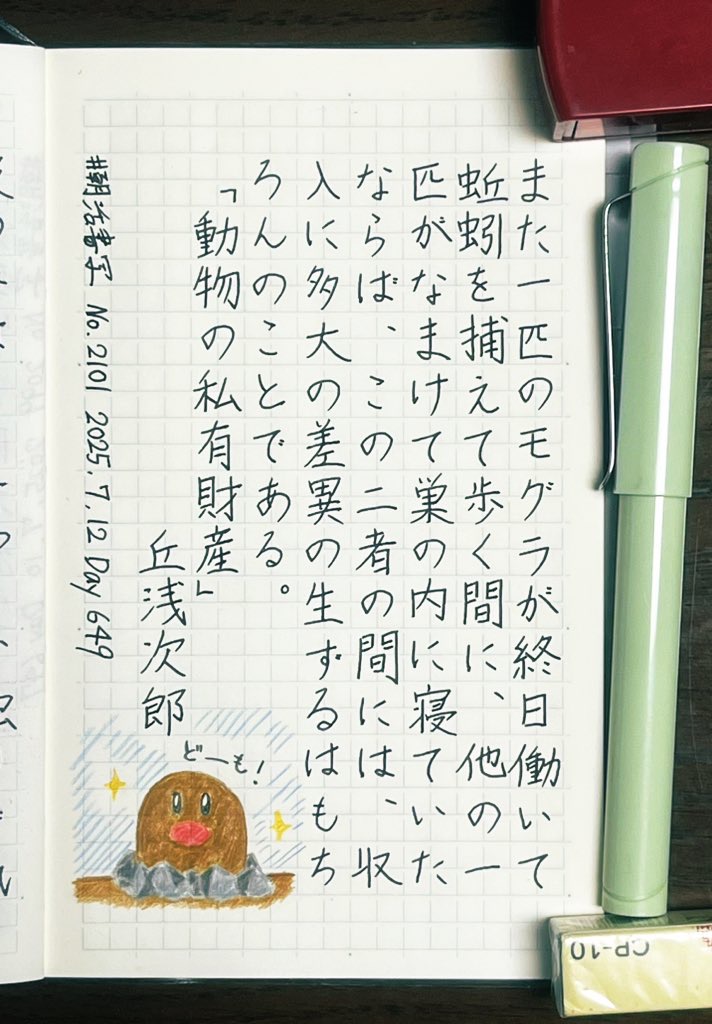 また一匹のモグラが終日働いて
蚯蚓を捕えて歩く間に、他の一
匹がなまけて巣の内に寝ていた
ならば、この二者の間には、収
入に多大の差異の生ずるはもち
ろんのことである。
「動物の私有財産」
丘浅次郎
#朝活書写 No.2101 2025.7.12 Day 649
どーも!
CP-10